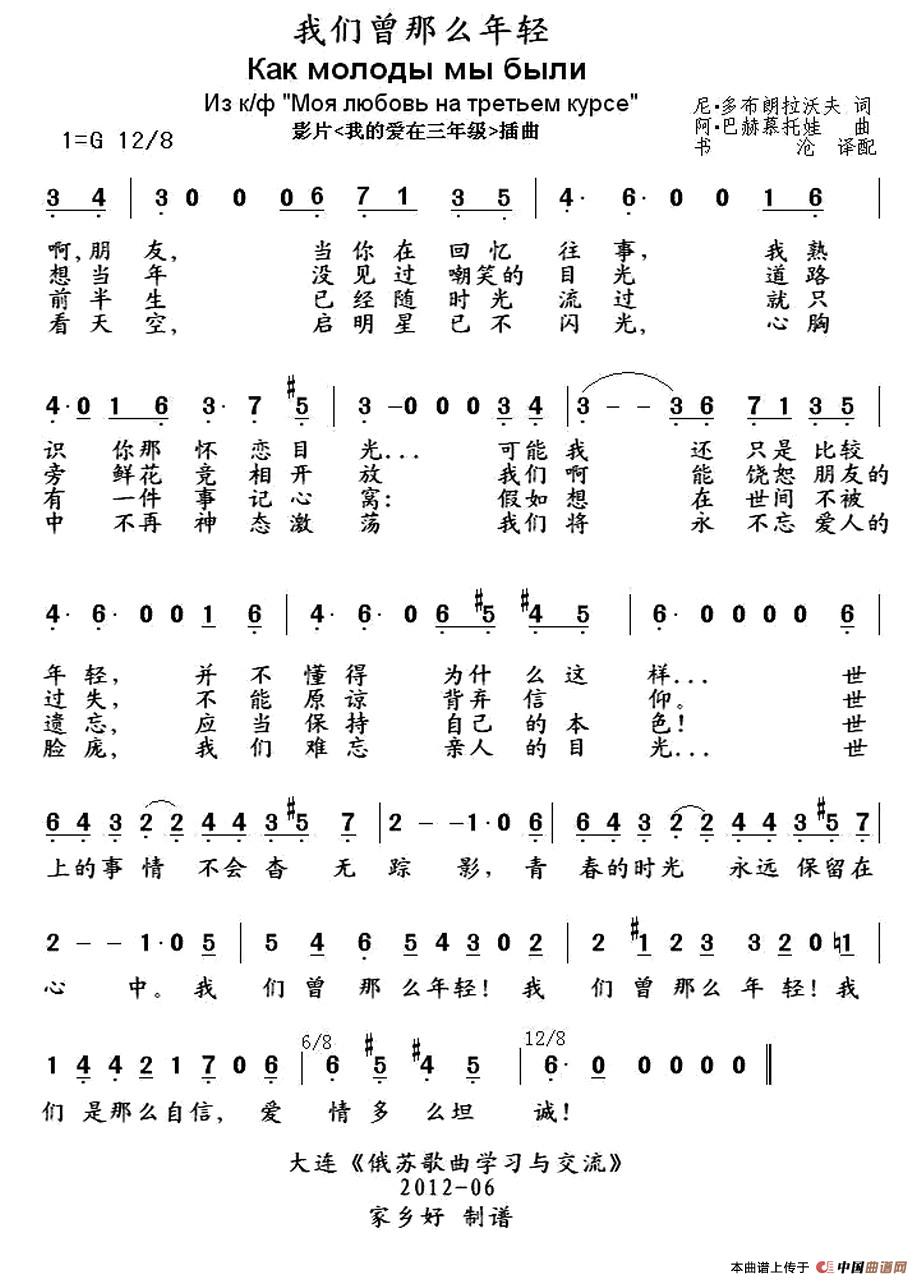 我们曾那么年轻
Как молоды мы были
Из к/ф "Моя любовь на третьем курсе"
影片<我的爱在三年级>插曲
1=G 12/8
尼·多布朗拉沃夫 词
阿·巴赫慕托娃 曲
书 沧 译配
3 4 | 3 0 0 0 6 7 1 3 5 | 4· 6· 0 0 1 6 |
啊,朋友, 当你在回忆往事, 我熟
想当年 没见过嘲笑的目光 道路
前半生 已经随时光流过 就只
看天空, 启明星已不闪光, 心胸
4·0 1 6 3· 7 #5 | 3 -0 0 0 3 4 | 3 - - 3 6 7 1 3 5 |
识 你那怀恋目光... 可能我 还只是比较
旁 鲜花竞相开放 我们啊 能饶恕朋友的
有 一件事记心窝: 假如想 在世间不被
中 不再神态激荡 我们将 永不忘爱人的
4· 6· 0 0 1 6 | 4· 6· 0 6 #5 #4 5 | 6· 0 0 0 0 6 |
年轻, 并不懂得 为什么这样... 世
过失, 不能原谅 背弃信仰。 世
遗忘, 应当保持 自己的本色! 世
脸庞, 我们难忘 亲人的目光... 世
6 4 3 2 2 4 4 3 #5 7 | 2 - -1·0 6 | 6 4 3 2 2 4 4 3 #5 7 |
上的事情 不会杳无踪影, 青春的时光 永远保留在
2 - - 1·0 5 | 5 4 6 5 4 3 0 2 | 2 #1 2 3 3 2 0 ♮1 |
心中。我们曾那么年轻! 我们曾那么年轻! 我
1 4 4 2 1 7 0 6 | 6/8 6 #5 #4 5 | 12/8 6· 0 0 0 0 0 ‖
们是那么自信, 爱情多么坦诚!
大连《俄苏歌曲学习与交流》
2012-06
家乡好 制谱
本曲谱上传于 中国曲谱网